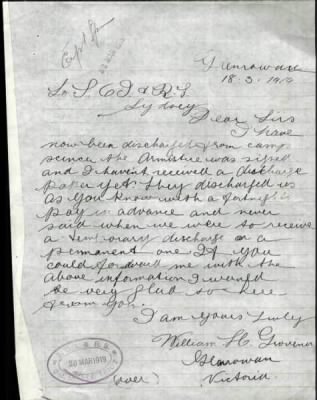 Glenrowan
18.3.1919
To S. O I & R. S
Sydney
Dear Sirs
I have
now been discharged from camp
since the Armistice was signed
and I havent received a discharge
paper yet. they discharged us
as you know with a fortnights
pay in advance and never
said when we were to receive
a temporary discharge or a
permanent one If you
could forward me with the
above information I would
be very glad to here
from you.
I am Yours truly
William H. Grovenor
Glenrowan
Victoria.
(over)
20 MAR 1919